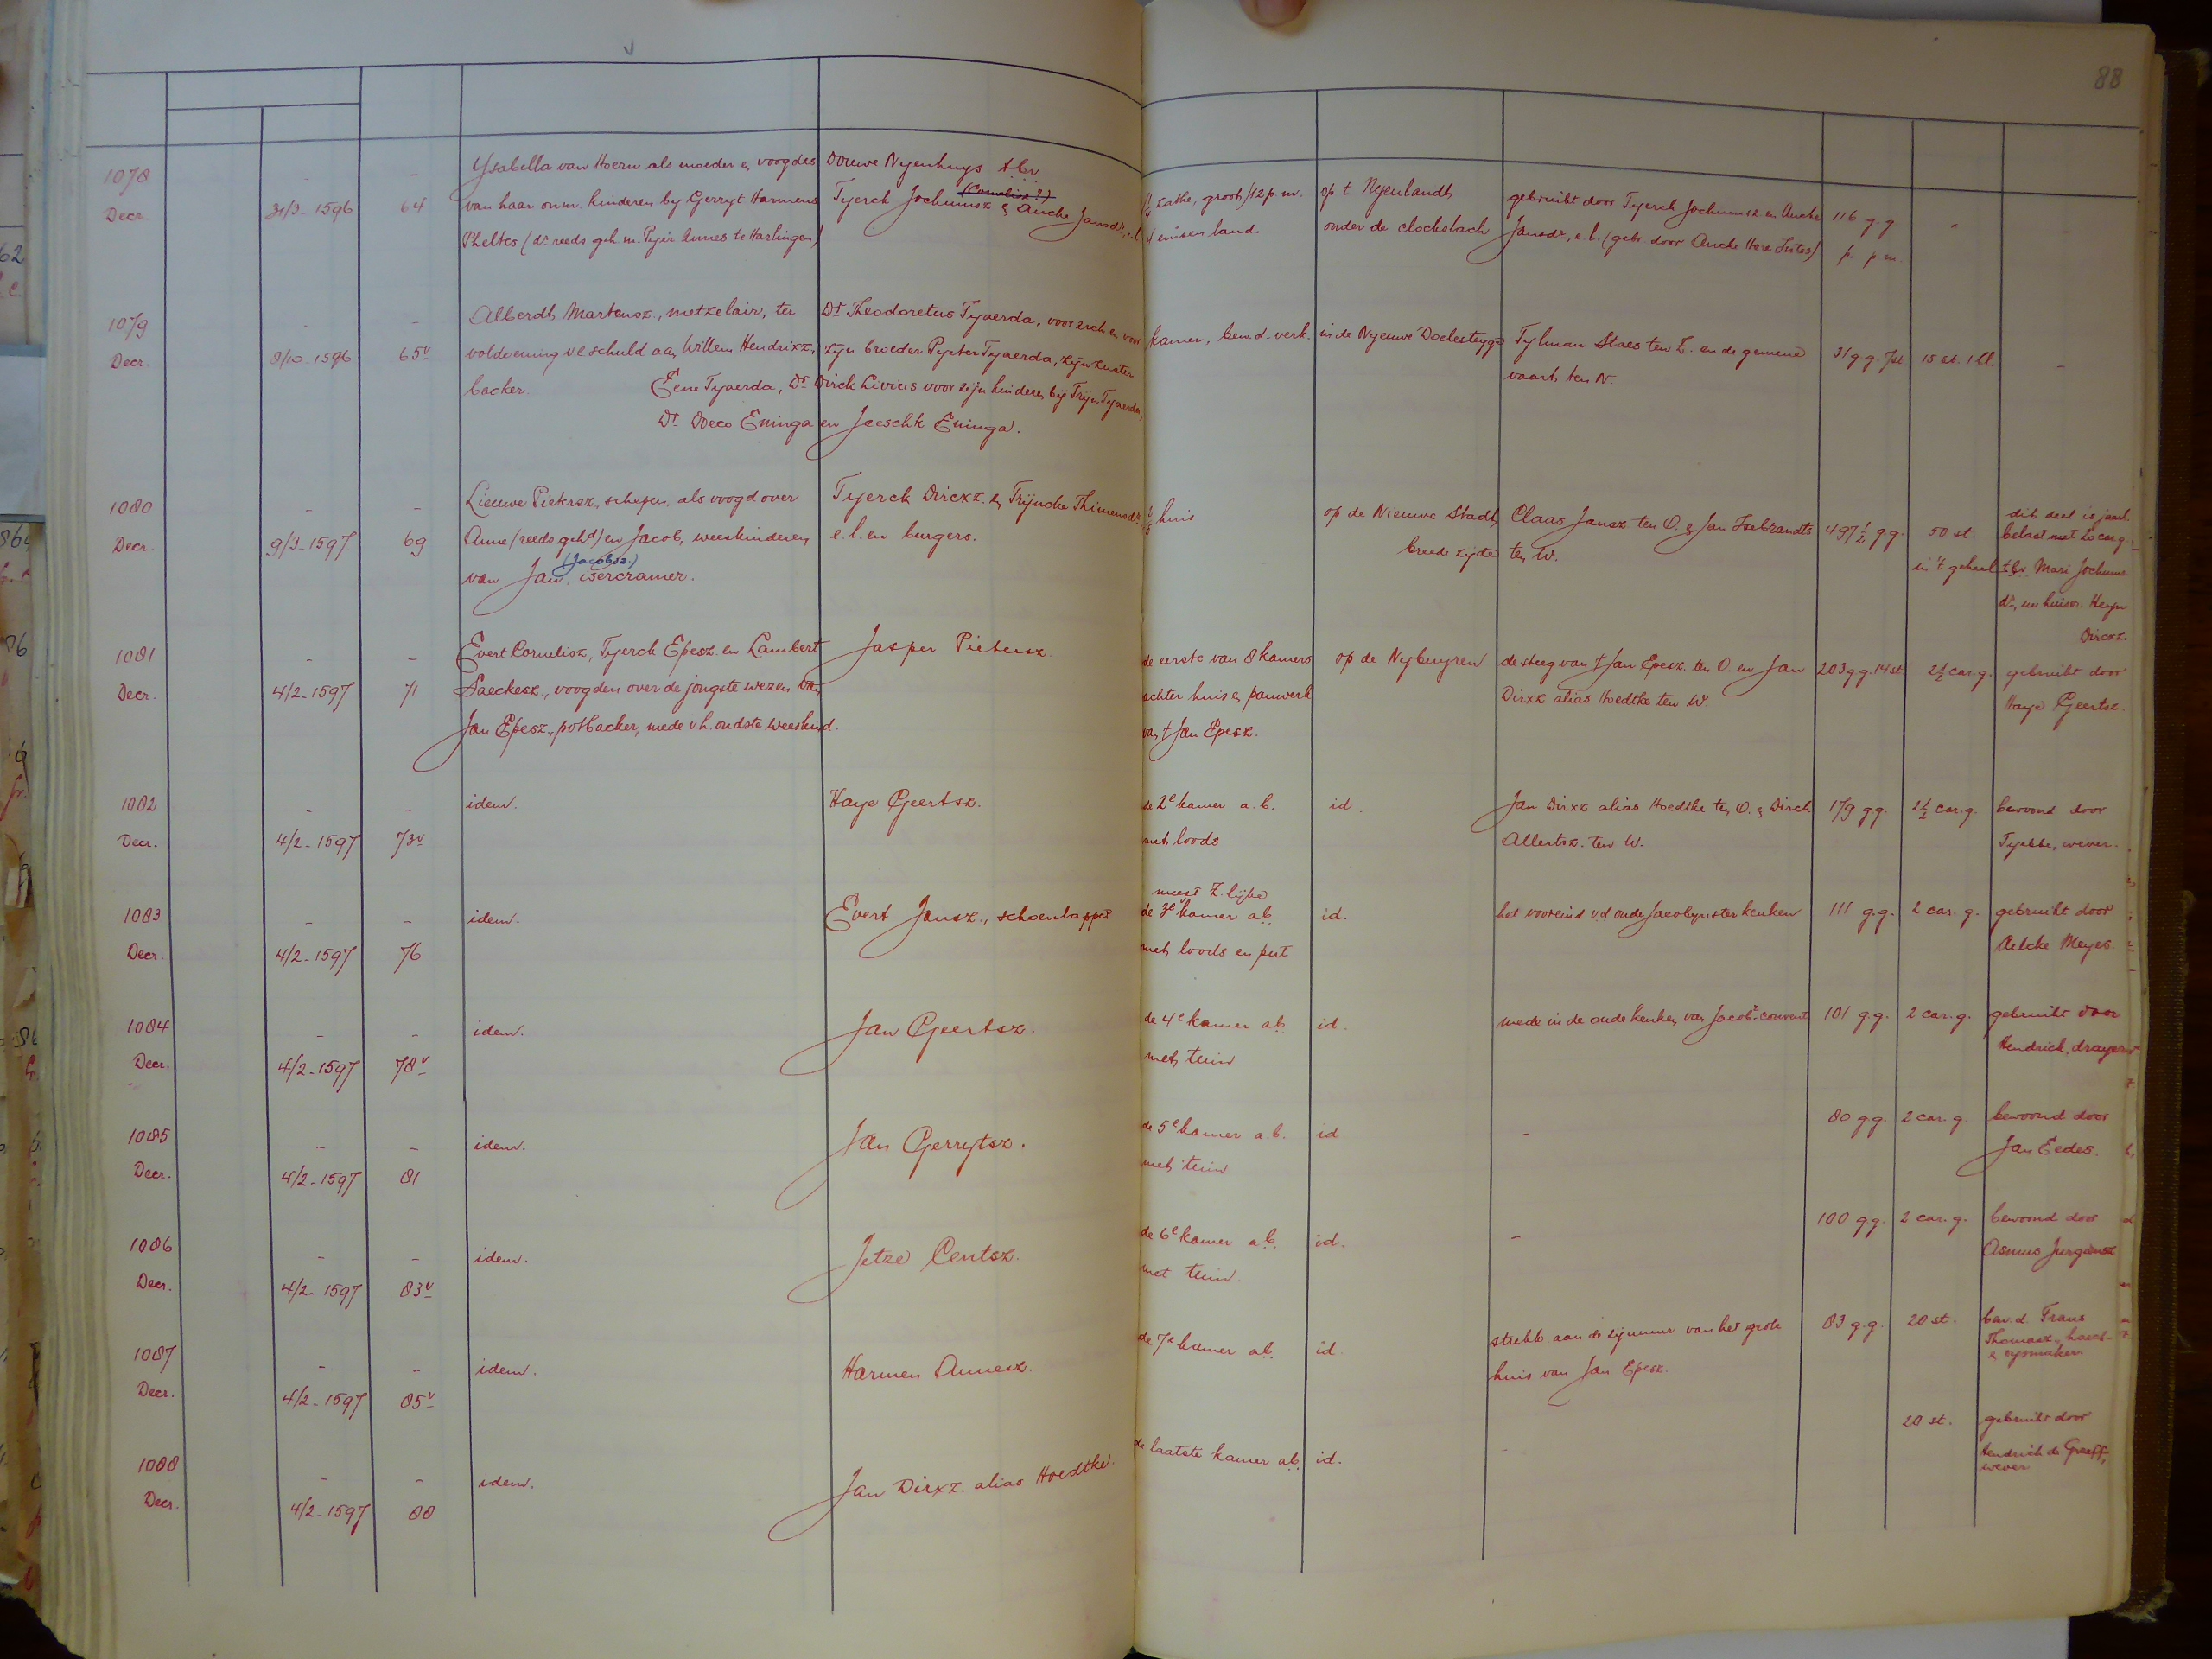 88
1078 - - Ysabella van Hoern als moeder en voogdes Douwe Nyenhuys t.b.v.
Decr. 31/3-1596 64 van haar onm. kinderen by Gerryt Harmens Tyerck Jochumsz (Cornelisz?) & Aucke Jansdr., e.l. zathe, groot 12 p.m. op t Nyenlandt gebruikt door Tyerck Jochumsz en Aucke 116 g.g. - -
Pheltes (dr. reeds geh. m. Pyir Annes te Harlingen) eiisen land. onder de clockslach Jansdr., e.l. (gebr. door Aucke p. p.m.
1079 - - Alberdt Martensz., metzelair, ter Dr. Theodoretus Tyaerda, voor zich en voor
Decr. 9/10-1596 65v voldoening v.e. schuld aan Willem Hendrixz, zijn broeder Pyeter Tyaerda, zijn zuster kamer, ben.d. verk. in de Nyeuwe Doelesteyge Tylman Staes ten Z. en de gemene 31 g.g. 7 st. 15 st. 1 bl. -
backer. Eene Tyaerda, Dr. Dirck Livius voor zijn kinderen bij Trijn Tyaerda, vaart ten N.
Dr. Doeco Eninga en Jeeschk Eninga.
1080 - - Lieuwe Pietersz., schepen, als voogd over Tyerck Dircxz. en Trijncke Thimensdr. huis op de Nieuwe Stadt, Claas Jansz ten O. & Jan Isebrandts 497½ g.g. 50 st. dit deel is jaarl.
Decr. 9/3-1597 69 Anne (reeds gehd.) en Jacob, weeskinderen e.l. en burgers. breede zijde ten W. in 't geheel belast met 20 car.g.
van Jan (Jacobsz.) isercramer. t.b.v. Mari Jochums
dr., nu huisvr. Heyn
Dircxz.
1081 - - Evert Cornelisz, Tyerck Epesz. en Lambert Jasper Pietersz. de eerste van 8 kamers op de Nyburyren de steeg van † Jan Epesz. ten O. en Jan 203 g.g. 14 st. 2½ car.g. gebruikt door
Decr. 4/2-1597 71 Saeckesz., voogden over de jongste wezen van achter huis & panwerk Dirxz alias Hoedtke ten W. Haye Geertsz.
Jan Epesz., potbacker, mede v.h. oudste weeskind. van † Jan Epesz.
1082 - - idem. Haye Geertsz. de 2e kamer a.b. id. Jan Dirxz alias Hoedtke ten O. & Dirck 179 g.g. 2½ car.g. bewoond door
Decr. 4/2-1597 73v met loods Allertsz. ten W. Tyebbe, wever.
1083 - - idem. Evert Jansz., schoenlapper de 3e meest Z.lijke kamer a.b. id. het vooreind v.d. oude Jacobynster keuken 111 g.g. 2 car.g. gebruikt door
Decr. 4/2-1597 76 met loods en put Aelcke Meyes.
1084 - - idem. Jan Geertsz. de 4e kamer a.b. id. mede in de oude keuken van Jacob. convent 101 g.g. 2 car.g. gebruikt door
Decr. 4/2-1597 78v met tuin Hendrick, drayer
1085 - - idem. Jan Gerrytsz. de 5e kamer a.b. id - 80 g.g. 2 car.g. bewoond door
Decr. 4/2-1597 81 met tuin Jan Eedes.
1086 - - idem. Jetze Centsz. de 6e kamer a.b. id. - 100 g.g. 2 car.g. bewoond door
Decr. 4/2-1597 83v met tuin. Asmus Jurgiensz
1087 - - idem. Harmen Annesz. de 7e kamer a.b. id. strekt aan de zijmuur van het grote 83 g.g. 20 st. bew.d. Frans
Decr. 4/2-1597 85v huis van Jan Epesz. Thomasz.,
1088 - - idem. Jan Dirxz. alias Hoedtke. de laatste kamer a.b. id. - 20 st. gebruikt door
Decr. 4/2-1597 88 Hendrick de Graeff,
wever